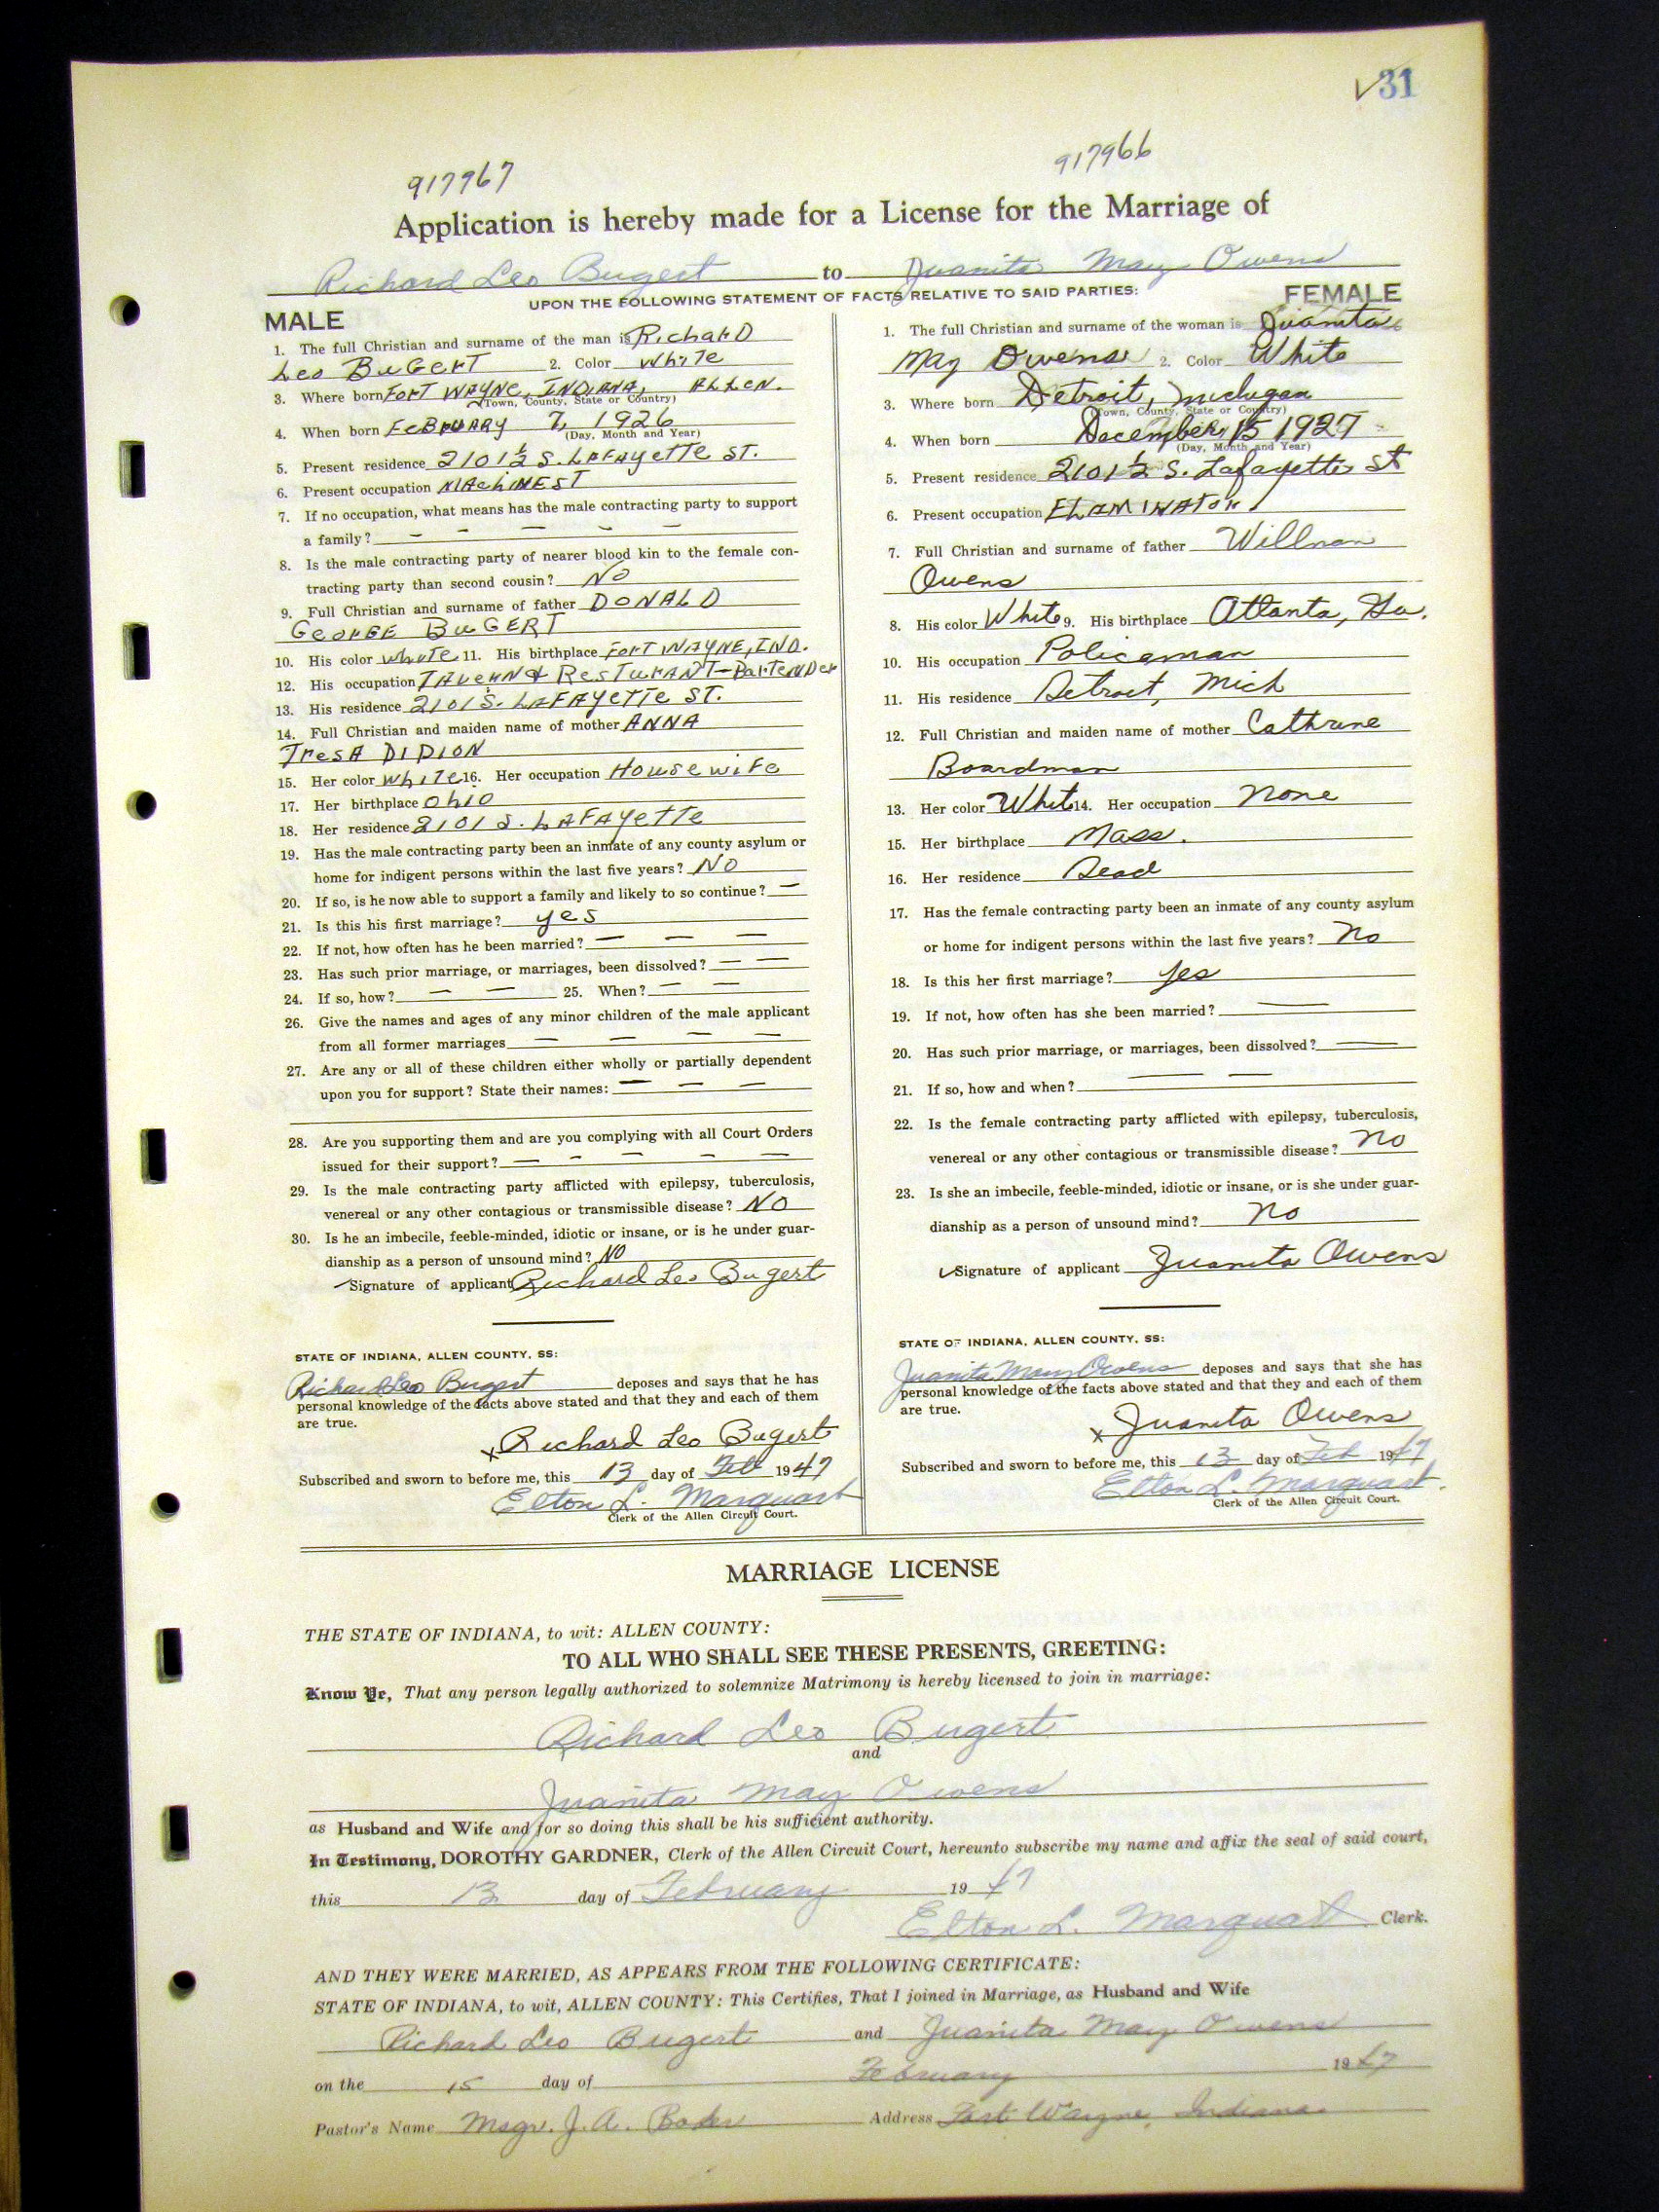 31
917967
917966
Application is hereby made for a License for the Marriage of
Richard Leo Bugert to Juanita May Owens
UPON THE FOLLOWING STATEMENT OF FACTS RELATIVE TO SAID PARTIES:
MALE
1. The full Christian and surname of the man is RichARD
Leo BuGERT 2. Color white
3. Where born FORT WAYNE, INDIANA, ALLEN.
(Town, County, State or Country)
4. When born FEBRUARY 7, 1926
(Day, Month and Year)
5. Present residence 2101½ S. LAFAyeTTe ST.
6. Present occupation MAChINEST
7. If no occupation, what means has the male contracting party to support
a family? - - - -
8. Is the male contracting party of nearer blood kin to the female con-
tracting party than second cousin? No
9. Full Christian and surname of father DONALD
GeORGE BuGERT
10. His color white 11. His birthplace FORT WAYNE, IND.
12. His occupation TAVERN & ResTuRANT-BaRTeNDeR
13. His residence 2101 S. LAFAyeTTe ST.
14. Full Christian and maiden name of mother ANNA
TresA DIDION
15. Her color white 16. Her occupation Housewife
17. Her birthplace Ohio
18. Her residence 2101 S. LAFAyeTTe
19. Has the male contracting party been an inmate of any county asylum or
home for indigent persons within the last five years? No
20. If so, is he now able to support a family and likely to so continue? —
21. Is this his first marriage? yes
22. If not, how often has he been married? — — —
23. Has such prior marriage, or marriages, been dissolved? — —
24. If so, how? — — 25. When? — —
26. Give the names and ages of any minor children of the male applicant
from all former marriages — — — —
27. Are any or all of these children either wholly or partially dependent
upon you for support? State their names: — — —
28. Are you supporting them and are you complying with all Court Orders
issued for their support? — - — - —
29. Is the male contracting party afflicted with epilepsy, tuberculosis,
venereal or any other contagious or transmissible disease? NO
30. Is he an imbecile, feeble-minded, idiotic or insane, or is he under guar-
dianship as a person of unsound mind? NO
Signature of applicant Richard Leo Bugert
STATE OF INDIANA, ALLEN COUNTY, SS:
Richard Leo Bugert deposes and says that he has
personal knowledge of the facts above stated and that they and each of them
are true.
x Richard Leo Bugert
Subscribed and sworn to before me, this 13 day of Feb 1947
Elton L. Marquart
Clerk of the Allen Circuit Court.
FEMALE
1. The full Christian and surname of the woman is Juanita
May Owens 2. Color White
3. Where born Detroit, Michigan
(Town, County, State or Country)
4. When born December, 15 1927
(Day, Month and Year)
5. Present residence 2101½ S. Lafayette St
6. Present occupation
7. Full Christian and surname of father
Owens
8. His color White 9. His birthplace Atlanta, Ga.
10. His occupation Policeman
11. His residence Detroit, Mich
12. Full Christian and maiden name of mother Cathrine
Boardman
13. Her color White 14. Her occupation None
15. Her birthplace Mass.
16. Her residence Dead
17. Has the female contracting party been an inmate of any county asylum
or home for indigent persons within the last five years? No
18. Is this her first marriage? Yes
19. If not, how often has she been married? —
20. Has such prior marriage, or marriages, been dissolved? —
21. If so, how and when? — —
22. Is the female contracting party afflicted with epilepsy, tuberculosis,
venereal or any other contagious or transmissible disease? No
23. Is she an imbecile, feeble-minded, idiotic or insane, or is she under guar-
dianship as a person of unsound mind? No
Signature of applicant Juanita Owens
STATE OF INDIANA, ALLEN COUNTY, SS:
Juanita May Owens deposes and says that she has
personal knowledge of the facts above stated and that they and each of them
are true.
x Juanita Owens
Subscribed and sworn to before me, this 13 day of Feb 1947
Elton L. Marquart.
Clerk of the Allen Circuit Court.
MARRIAGE LICENSE
THE STATE OF INDIANA, to wit: ALLEN COUNTY:
TO ALL WHO SHALL SEE THESE PRESENTS, GREETING:
Know Ye, That any person legally authorized to solemnize Matrimony is hereby licensed to join in marriage:
Richard Leo Bugert
and
Juanita May Owens
as Husband and Wife and for so doing this shall be his sufficient authority.
In Testimony, DOROTHY GARDNER, Clerk of the Allen Circuit Court, hereunto subscribe my name and affix the seal of said court,
this 13 day of February 1947
Elton L. Marquart Clerk.
AND THEY WERE MARRIED, AS APPEARS FROM THE FOLLOWING CERTIFICATE:
STATE OF INDIANA, to wit, ALLEN COUNTY: This Certifies, That I joined in Marriage, as Husband and Wife
Richard Leo Bugert and Juanita May Owens
on the 15 day of February 1947
Pastor's Name Msgr. J. A. Address Fort Wayne, Indiana